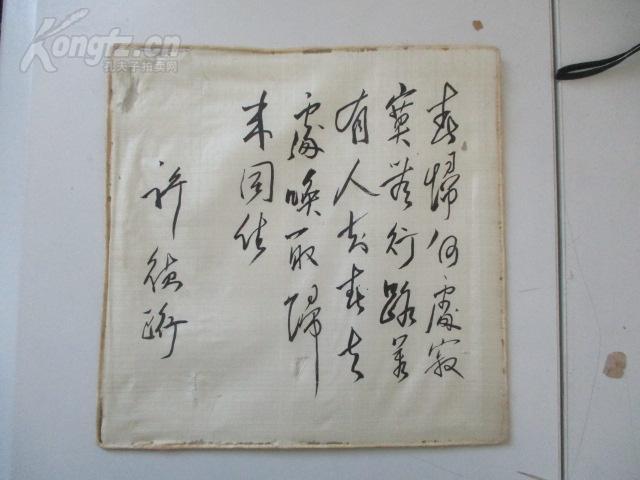 春歸何處寂
寞無行路若
有人知春去
處喚取歸
來同住
許德珩
Kongtz.cn
孔夫子拍卖网